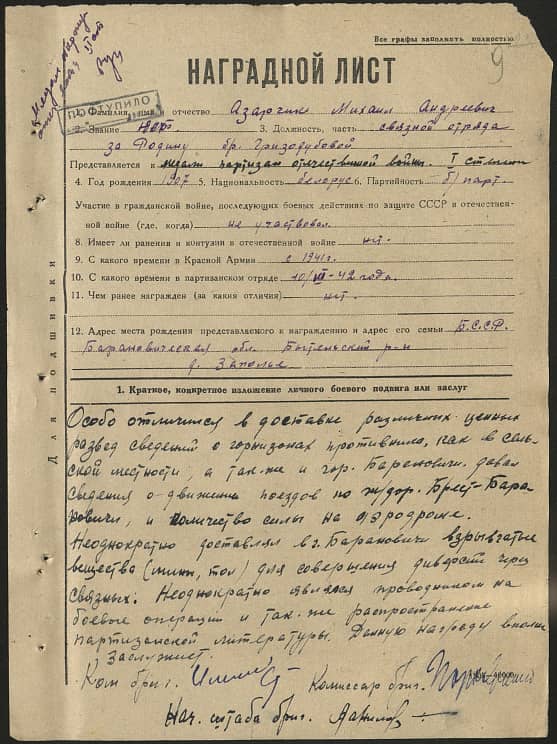 Все графы заполнить полностью
9
ПОСТУПИЛО
НАГРАДНОЙ ЛИСТ
1. Фамилия, имя и отчество Азарчик Михаил Андреевич
2. Звание 3. Должность, часть связной отряда
за Родину бр. Гризодубовой
Представляется к медали партизан отечественной войны. I степени
4. Год рождения 1907 5. Национальность белорус 6. Партийность б/парт.
Участие в гражданской войне, последующих боевых действиях по защите СССР и отечествен-
ной войне (где, когда) не участвовал
8. Имеет ли ранения и контузии в отечественной войне нет.
9. С какого времени в Красной Армии с 1941г.
10. С какого времени в партизанском отряде 10/VII-42 года.
11. Чем ранее награжден (за какия отличия) нет.
12. Адрес места рождения представляемого к награждению и адрес его семьи Б.С.С.Р.
Барановическая обл. Бытеньский р-н
д. Заполье
Для подшивки
1. Краткое, конкретное изложение личного боевого подвига или заслуг
Особо отличился в доставке различных ценных
развед сведений о горнизонах противника, как в сель-
ской местности а так-же и гор. Бареновичи. давал
сведения о движении поездов по ж/дор. Брест-Бара-
новичи, и количество силы на аэродроме.
Неоднократно доставлял в г. Барановичи взрывчатые
вещества (мины, тол) для совершения диверсий через
связных. Неоднократно являлся проводником на
боевые операции и так-же распространение
партизанской литературы. Данную награду вполне
заслужист.
Ком. бриг. Комиссар бриг.
Нач. штаба бриг. Данилов